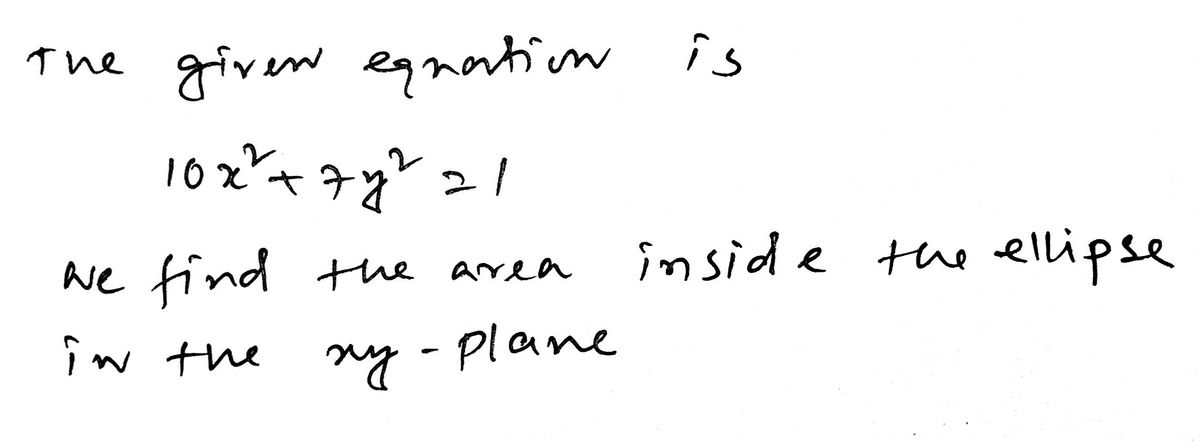 The given equation is
10x² + 7y² = 1
we find the area inside the ellipse
in the xy-plane